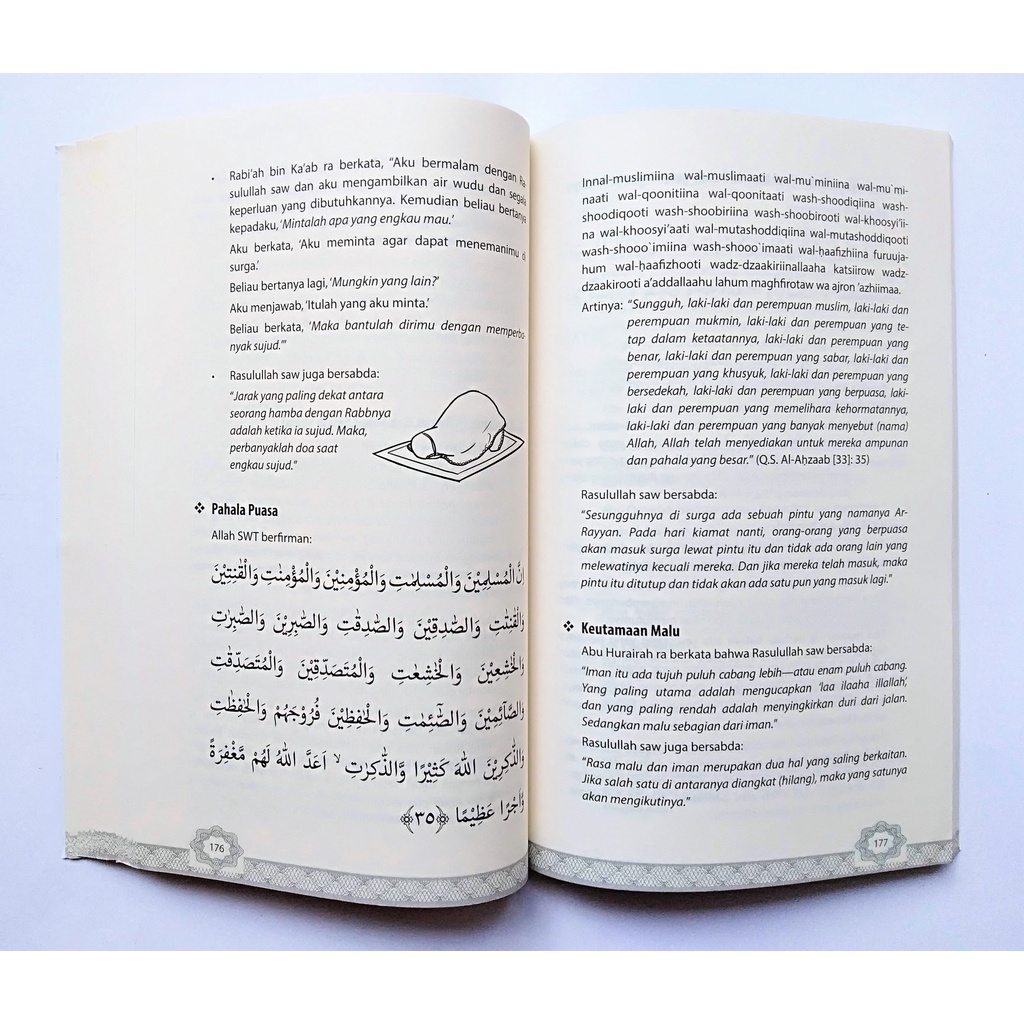 • Rabi'ah bin Ka'ab ra berkata, "Aku bermalam dengan Ra-
sulullah saw dan aku mengambilkan air wudu dan segala
keperluan yang dibutuhkannya. Kemudian beliau bertanya
kepadaku, 'Mintalah apa yang engkau mau.'
Aku berkata, 'Aku meminta agar dapat menemanimu d
surga.'
Beliau bertanya lagi, 'Mungkin yang lain?'
Aku menjawab, 'Itulah yang aku minta.'
Beliau berkata, 'Maka bantulah dirimu dengan memperba-
nyak sujud.'"
• Rasulullah saw juga bersabda:
"Jarak yang paling dekat antara
seorang hamba dengan Rabbnya
adalah ketika ia sujud. Maka,
perbanyaklah doa saat
engkau sujud."
❖ Pahala Puasa
Allah SWT berfirman:
اِنَّ الْمُسْلِمِيْنَ وَالْمُسْلِمٰتِ وَالْمُؤْمِنِيْنَ وَالْمُؤْمِنٰتِ وَالْقٰنِتِيْنَ
وَالْقٰنِتٰتِ وَالصّٰدِقِيْنَ وَالصّٰدِقٰتِ وَالصّٰبِرِيْنَ وَالصّٰبِرٰتِ
وَالْخٰشِعِيْنَ وَالْخٰشِعٰتِ وَالْمُتَصَدِّقِيْنَ وَالْمُتَصَدِّقٰتِ
وَالصَّآئِمِيْنَ وَالصّٰۤئِمٰتِ وَالْحٰفِظِيْنَ فُرُوْجَهُمْ وَالْحٰفِظٰتِ
وَالذّٰكِرِيْنَ اللّٰهَ كَثِيْرًا وَّالذّٰكِرٰتِ ۙ اَعَدَّ اللّٰهُ لَهُمْ مَّغْفِرَةً
وَّاَجْرًا عَظِيْمًا ﴿٣٥﴾
176
Innal-muslimiina wal-muslimaati wal-mu`miniina wal-mu`mi-
naati wal-qoonitiina wal-qoonitaati wash-shoodiqiina wash-
shoodiqooti wash-shoobiriina wash-shoobirooti wal-khoosyi'ii-
na wal-khoosyi'aati wal-mutashoddiqiina wal-mutashoddiqooti
wash-shooo`imiina wash-shooo`imaati wal-ḥaafizhiina furuuja-
hum wal-ḥaafizhooti wadz-dzaakiriinallaaha katsiirow wadz-
dzaakirooti a'addallaahu lahum maghfirotaw wa ajron 'azhiimaa.
Artinya: "Sungguh, laki-laki dan perempuan muslim, laki-laki dan
perempuan mukmin, laki-laki dan perempuan yang te-
tap dalam ketaatannya, laki-laki dan perempuan yang
benar, laki-laki dan perempuan yang sabar, laki-laki dan
perempuan yang khusyuk, laki-laki dan perempuan yang
bersedekah, laki-laki dan perempuan yang berpuasa, laki-
laki dan perempuan yang memelihara kehormatannya,
laki-laki dan perempuan yang banyak menyebut (nama)
Allah, Allah telah menyediakan untuk mereka ampunan
dan pahala yang besar." (Q.S. Al-Aḥzaab [33]: 35)
Rasulullah saw bersabda:
"Sesungguhnya di surga ada sebuah pintu yang namanya Ar-
Rayyan. Pada hari kiamat nanti, orang-orang yang berpuasa
akan masuk surga lewat pintu itu dan tidak ada orang lain yang
melewatinya kecuali mereka. Dan jika mereka telah masuk, maka
pintu itu ditutup dan tidak akan ada satu pun yang masuk lagi."
❖ Keutamaan Malu
Abu Hurairah ra berkata bahwa Rasulullah saw bersabda:
"Iman itu ada tujuh puluh cabang lebih—atau enam puluh cabang.
Yang paling utama adalah mengucapkan 'laa ilaaha illallah',
dan yang paling rendah adalah menyingkirkan duri dari jalan.
Sedangkan malu sebagian dari iman."
Rasulullah saw juga bersabda:
"Rasa malu dan iman merupakan dua hal yang saling berkaitan.
Jika salah satu di antaranya diangkat (hilang), maka yang satunya
akan mengikutinya."
177